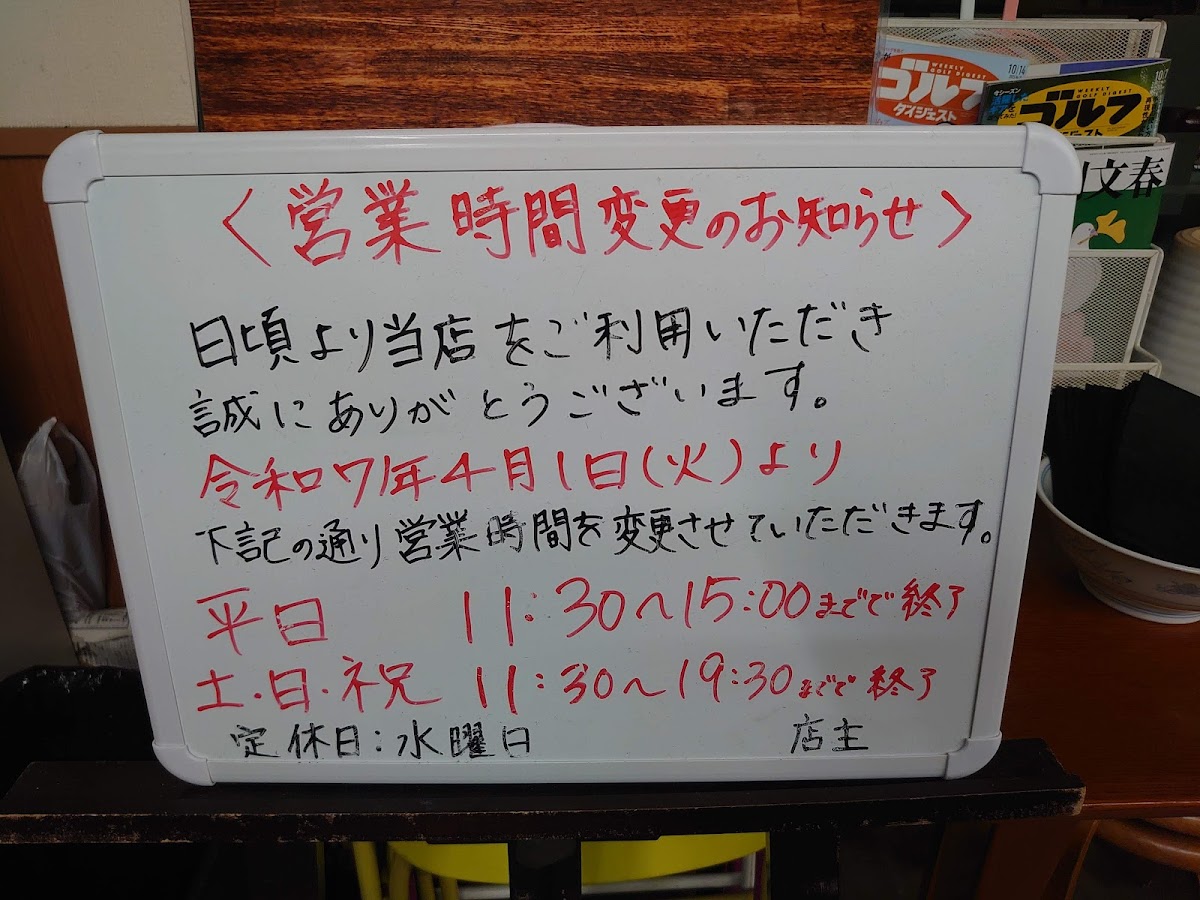 〈営業時間変更のお知らせ〉
日頃より当店をご利用いただき
誠にありがとうございます。
令和7年4月1日(火)より
下記の通り営業時間を変更させていただきます。
平日 11:30〜15:00までで終了
土・日・祝 11:30〜19:30までで終了
定休日:水曜日 店主
WEEKLY GOLF DIGEST
10/14
ゴルフ
ダイジェスト
WEEKLY GOLF DIGEST
ゴルフ
文春